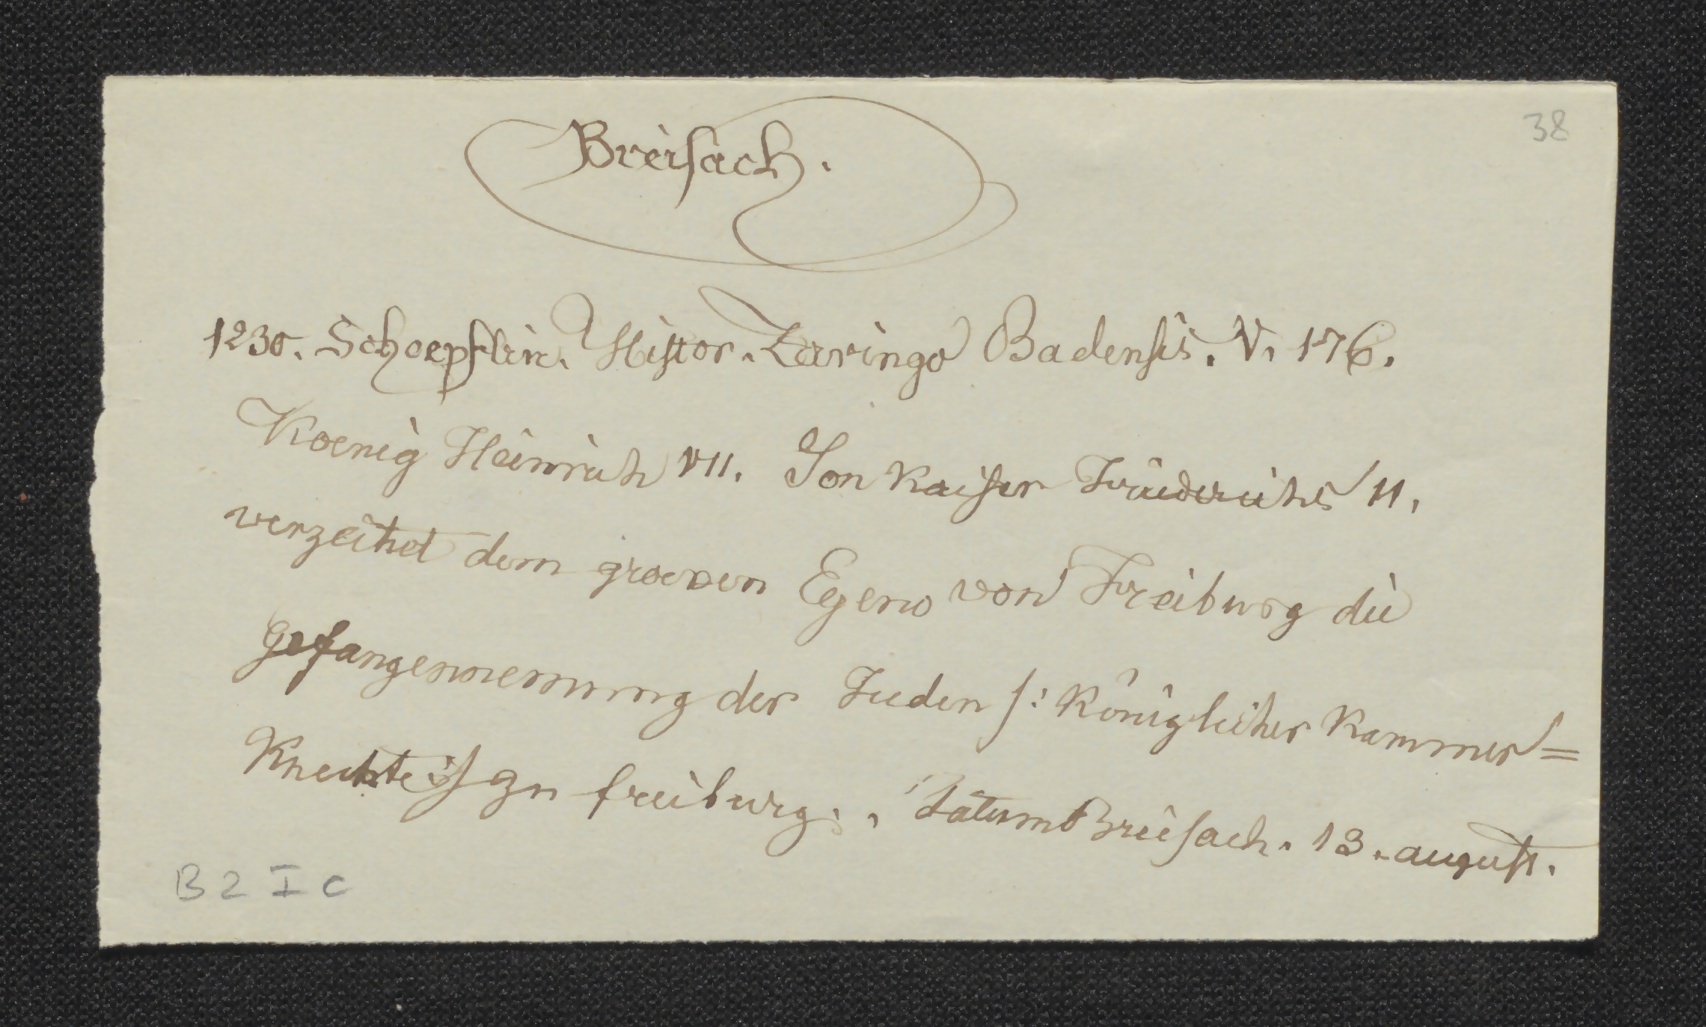 38
Breisach.
1230. Schoepflin. Histor. Zaringo Badensis. V. 176.
Koenig Heinrich VII. Son Kaiser Friederichs II.
verzeihet dem graeven Egeno von Freiburg die
gefangennemung der Juden /: königlicher Kammer=
Knechte :/ zu freiburg. Datum Breisach. 13. august.
B 2 I c